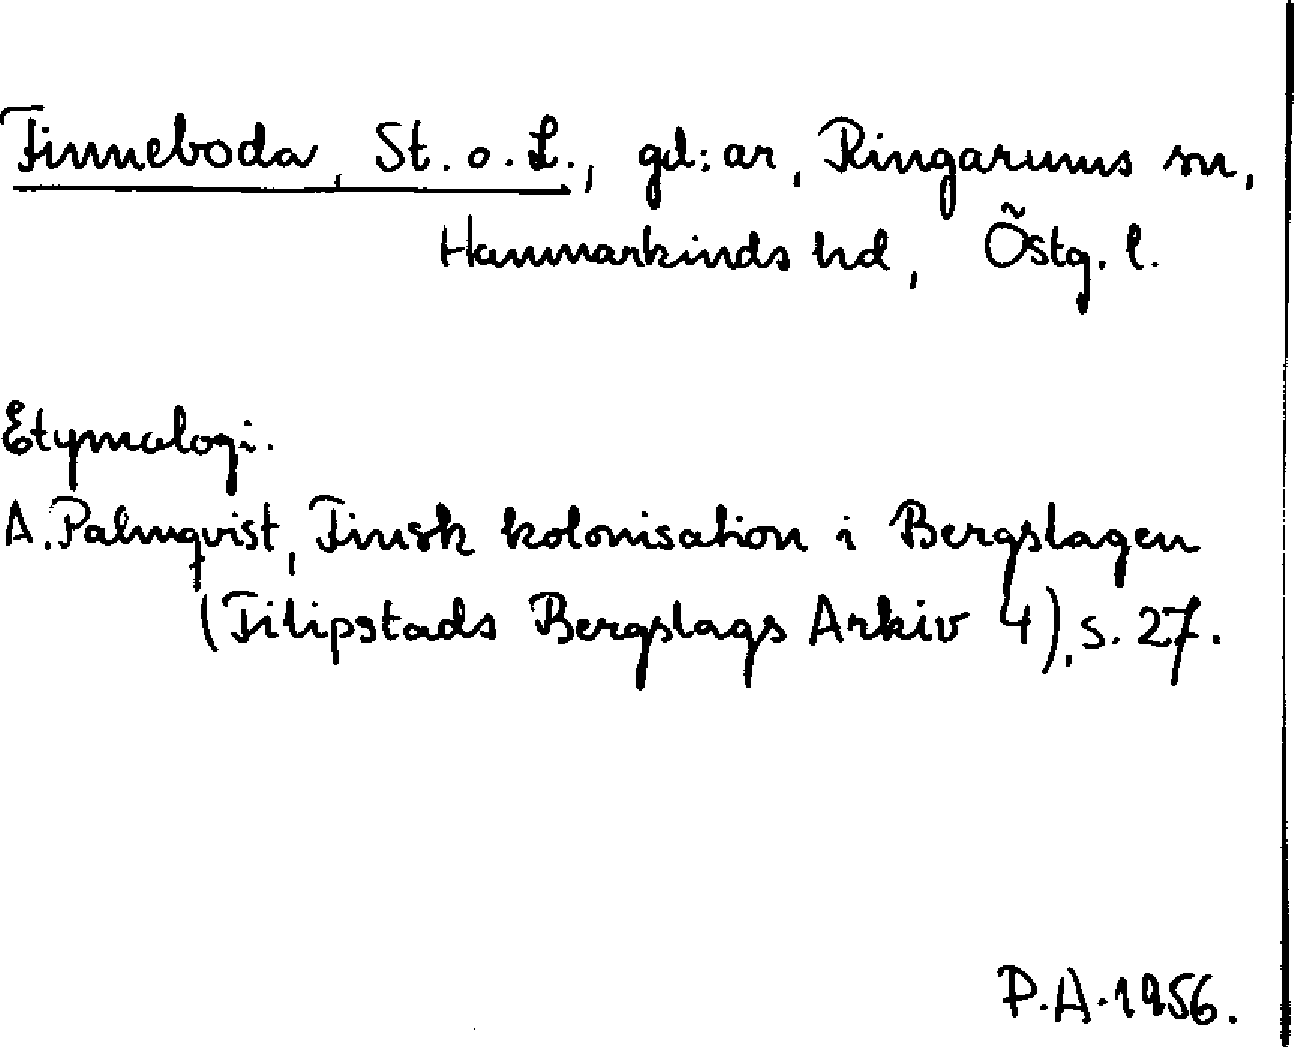 Finneboda, St. o. L., gd:ar, Ringarums sn,
Hammarkinds hd, Östg. l.
Etymologi.
A. Palmqvist, Finsk kolonisation i Bergslagen
(Filipstads Bergslags Arkiv 4), s. 27.
P.A. 1956.